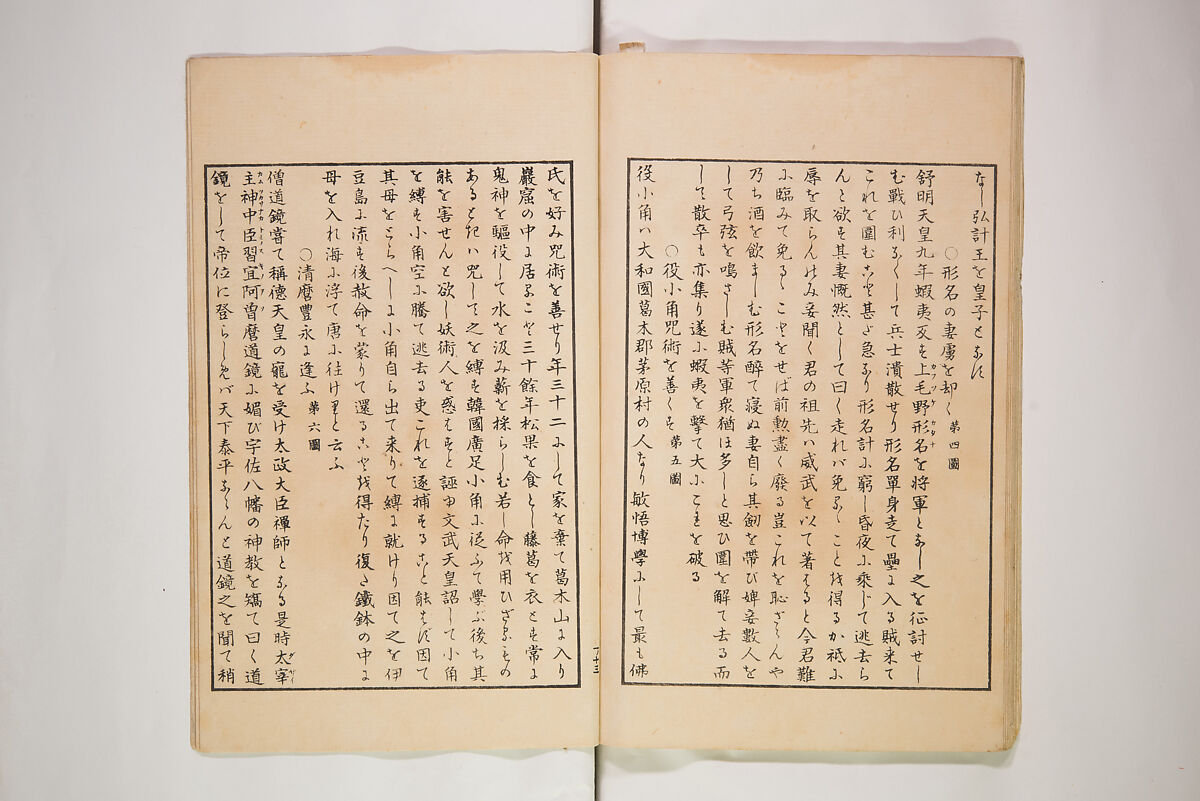 なし弘計王を皇子となす
○形名の妻虜を却く 第四圖
舒明天皇九年蝦夷叛す上毛野形名を將軍となし之を征討せし
む戰ひ利なくして兵士潰散せり形名單身走て壘に入る賊來て
これを圍むこと甚だ急なり形名計に窮し昏夜に乘じて逃去ら
んと欲す其妻慨然として曰く走れバ免るゝことを得るか祗に
辱を取らんのみ妾聞く君の祖先ハ威武を以て著はると今君難
に臨みて免るゝことをせば前勲盡く廢る豈これを恥ざらんや
乃ち酒を飲ましむ形名醉て寢ぬ妻自ら其劔を帶び婢妾數人を
して弓弦を鳴さしむ賊等軍衆猶ほ多しと思ひ圍を解て去る而
して散卒も亦集り遂に蝦夷を擊て大にこれを破る
○役小角咒術を善くす 第五圖
役小角ハ大和國葛木郡茅原村の人なり敏悟博學にして最も佛
氏を好み咒術を善せり年三十二にして家を棄て葛木山に入り
巖窟の中に居ること三十餘年松果を食とし藤葛を衣とす常に
鬼神を驅役して水を汲み薪を採らしむ若し命を用ひざるもの
あるときハ咒して之を縛す韓國廣足小角に從ふて學ぶ後ち其
能を害せんと欲し妖術人を惑はすと誣ゆ文武天皇詔して小角
を縛す小角空に騰て逃去る吏これを逐捕することと能はず因て
其母をとらへしに小角自ら出て來りて縛に就けり因て之を伊
豆島に流す後赦命を蒙りて還ることを得たり復た鐵鉢の中に
母を入れ海に浮て唐に往けりと云ふ
○清麿豐永に逢ふ 第六圖
僧道鏡嘗て稱德天皇の寵を受け太政大臣禪師となる是時太宰
主神中臣習宜阿曽麿道鏡に媚び宇佐八幡の神教を矯て曰く道
鏡をして帝位に登らしめバ天下泰平ならんと道鏡之を聞て稍
十三